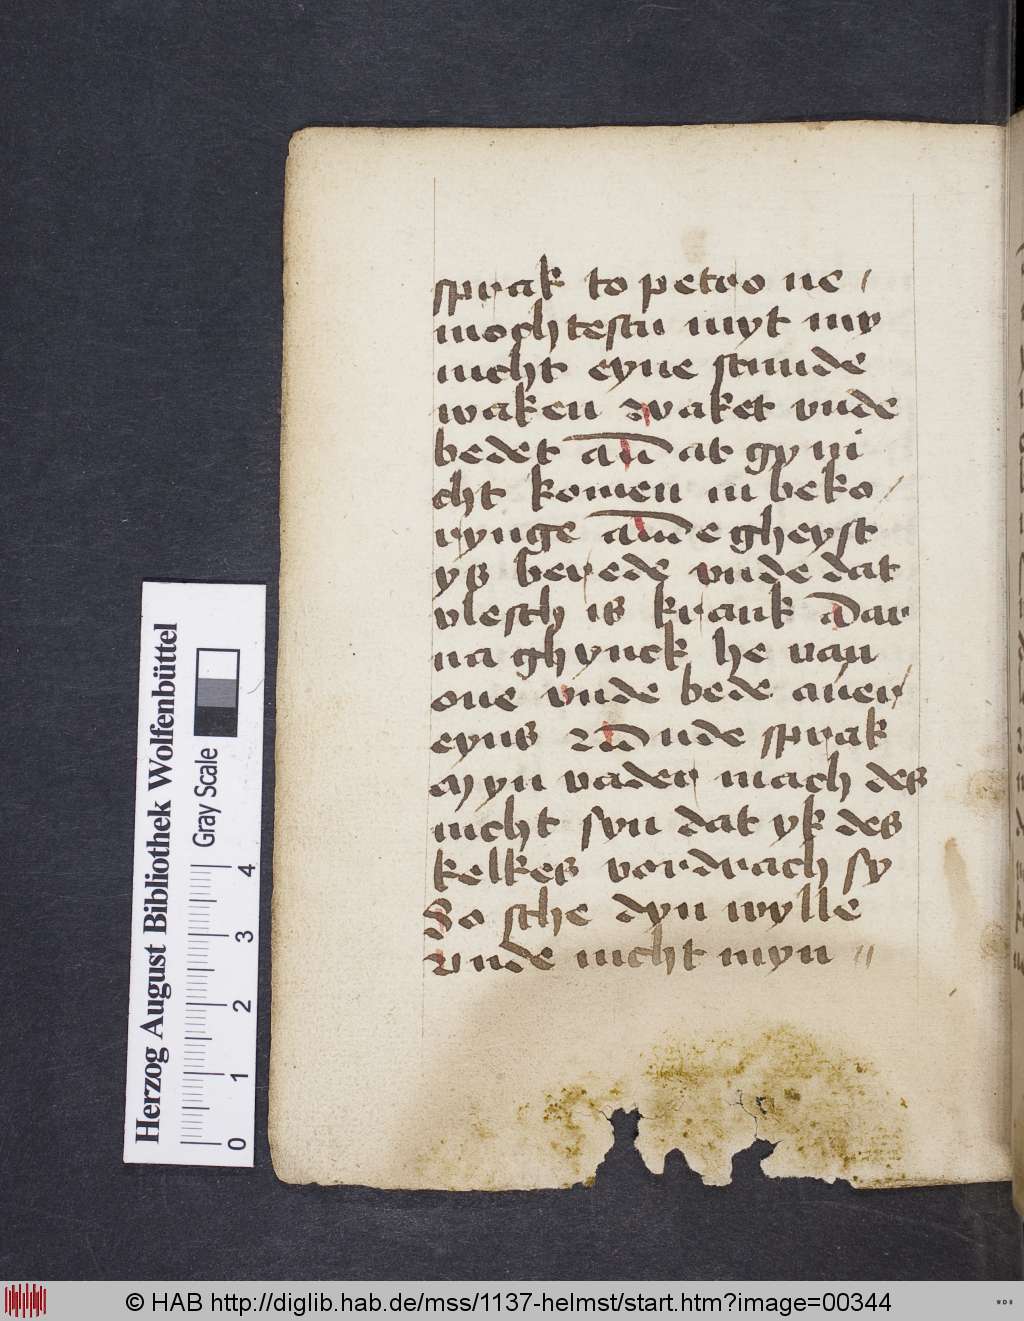 sprak to petro ne /
mochtestu myt my
nicht eyne stunde
waken waket vnde
bedet at gy ni
cht komen in beko /
rynge e gheyst
ys berede vnde dat
vlesch is krank dar
na ghynck he van
one vnde bede auer /
eyns vnde sprak
Myn vader mach des
nicht syn dat yk des
kelkes vordrach sy
So sche dyn wylle
vnde nicht myn //
Herzog August Bibliothek Wolfenbüttel
Gray Scale
0 1 2 3 4
© HAB http://diglib.hab.de/mss/1137-helmst/start.htm?image=00344